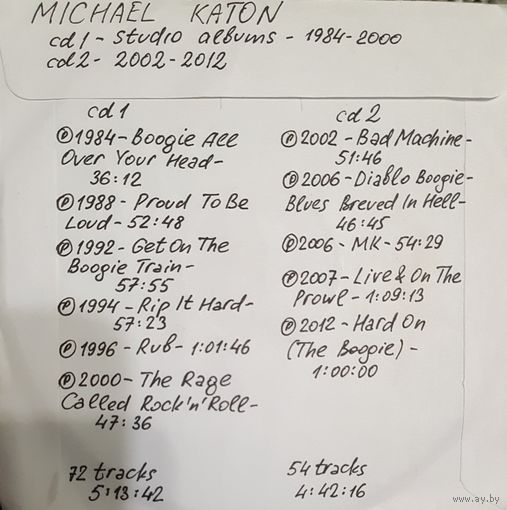 MICHAEL KATON
cd1 - studio albums - 1984-2000
cd2 - 2002-2012
cd1
℗1984 - Boogie All
Over Your Head -
36:12
℗1988 - Proud To Be
Loud - 52:48
℗1992 - Get On The
Boogie Train -
57:55
℗1994 - Rip It Hard -
57:23
℗1996 - Rub - 1:01:46
℗2000 - The Rage
Called Rock'n'Roll -
47:36
72 tracks
5:13:42
cd2
℗2002 - Bad Machine -
51:46
℗2006 - Diablo Boogie -
Blues Breved In Hell -
46:45
℗2006 - MK - 54:29
℗2007 - Live & On The
Prowl - 1:09:13
℗2012 - Hard On
(The Boogie) -
1:00:00
54 tracks
4:42:16
www.ay.by